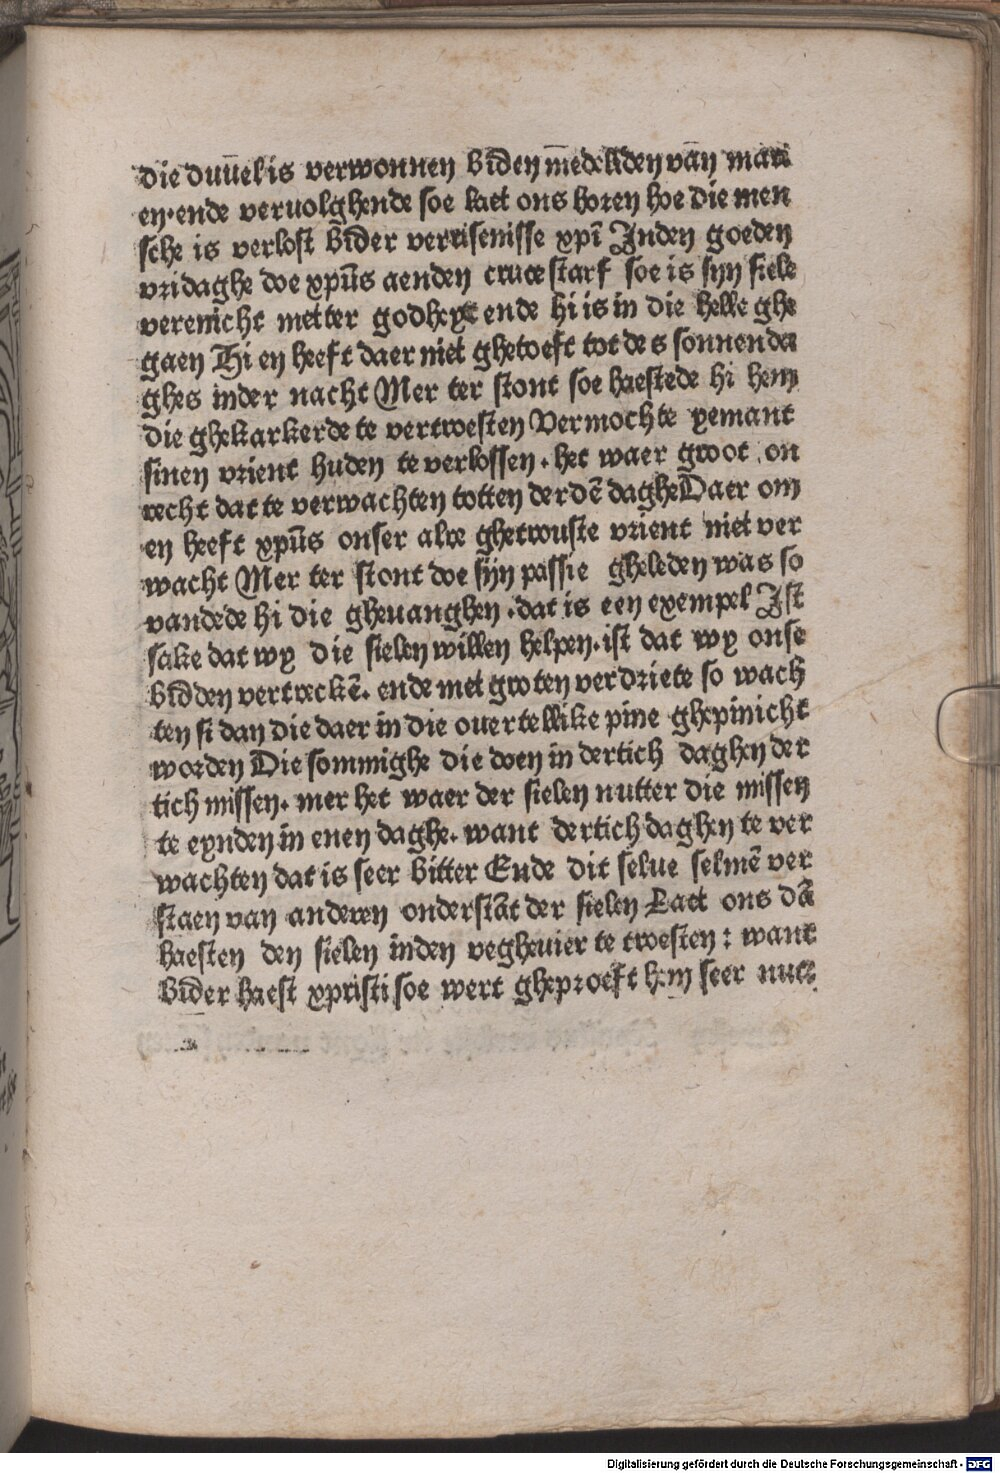 die duūel is verwonnen bidēn m̄edelidēn vāy mari
en·ende veruolghende soe laet ons horen hoe die men
sche is verlost bider verrisenisse xpī Inden goeden
vridaghe doe xpūs aenden cruce starf soe is sijn siele
verenicht metter godheyt ende hi is in die helle ghe
gaen Hi en heeft daer niet ghetoeft tot des sonnenda
ghes inder nacht Mer ter stont soe haestede hi hem
die ghekarkerde te vertroesten Vermochte yemant
sinen vrient huden te verlossen· het waer groot on
recht dat te verwachten totten derdē daghe Daer om
en heeft xpūs onser alre ghetrouste vrient niet ver
wacht Mer ter stont doe sijn passie gheleden was so
vandede hi die gheuanghen·dat is een exempel Ist
sake dat wy die sielen willen helpen·ist dat wy onse
bidden vertreckē· ende met groten verdriete so wach
ten si dan die daer in die ouertellike pine ghepinicht
worden Die sommighe die doen in dertich daghen der
tich missen· mer het waer der sielen nutter die missen
te eynden in enen daghe· want dertich daghen te ver
wachten dat is seer bitter Ende dit selue selmē ver
staen van anderen onderstāt der sielen Laet ons dā
haesten den sielen inden veghevier te troesten : want
bider haest xpristi soe wert gheproeft hem seer nut:
Digitalisierung gefördert durch die Deutsche Forschungsgemeinschaft - DFG